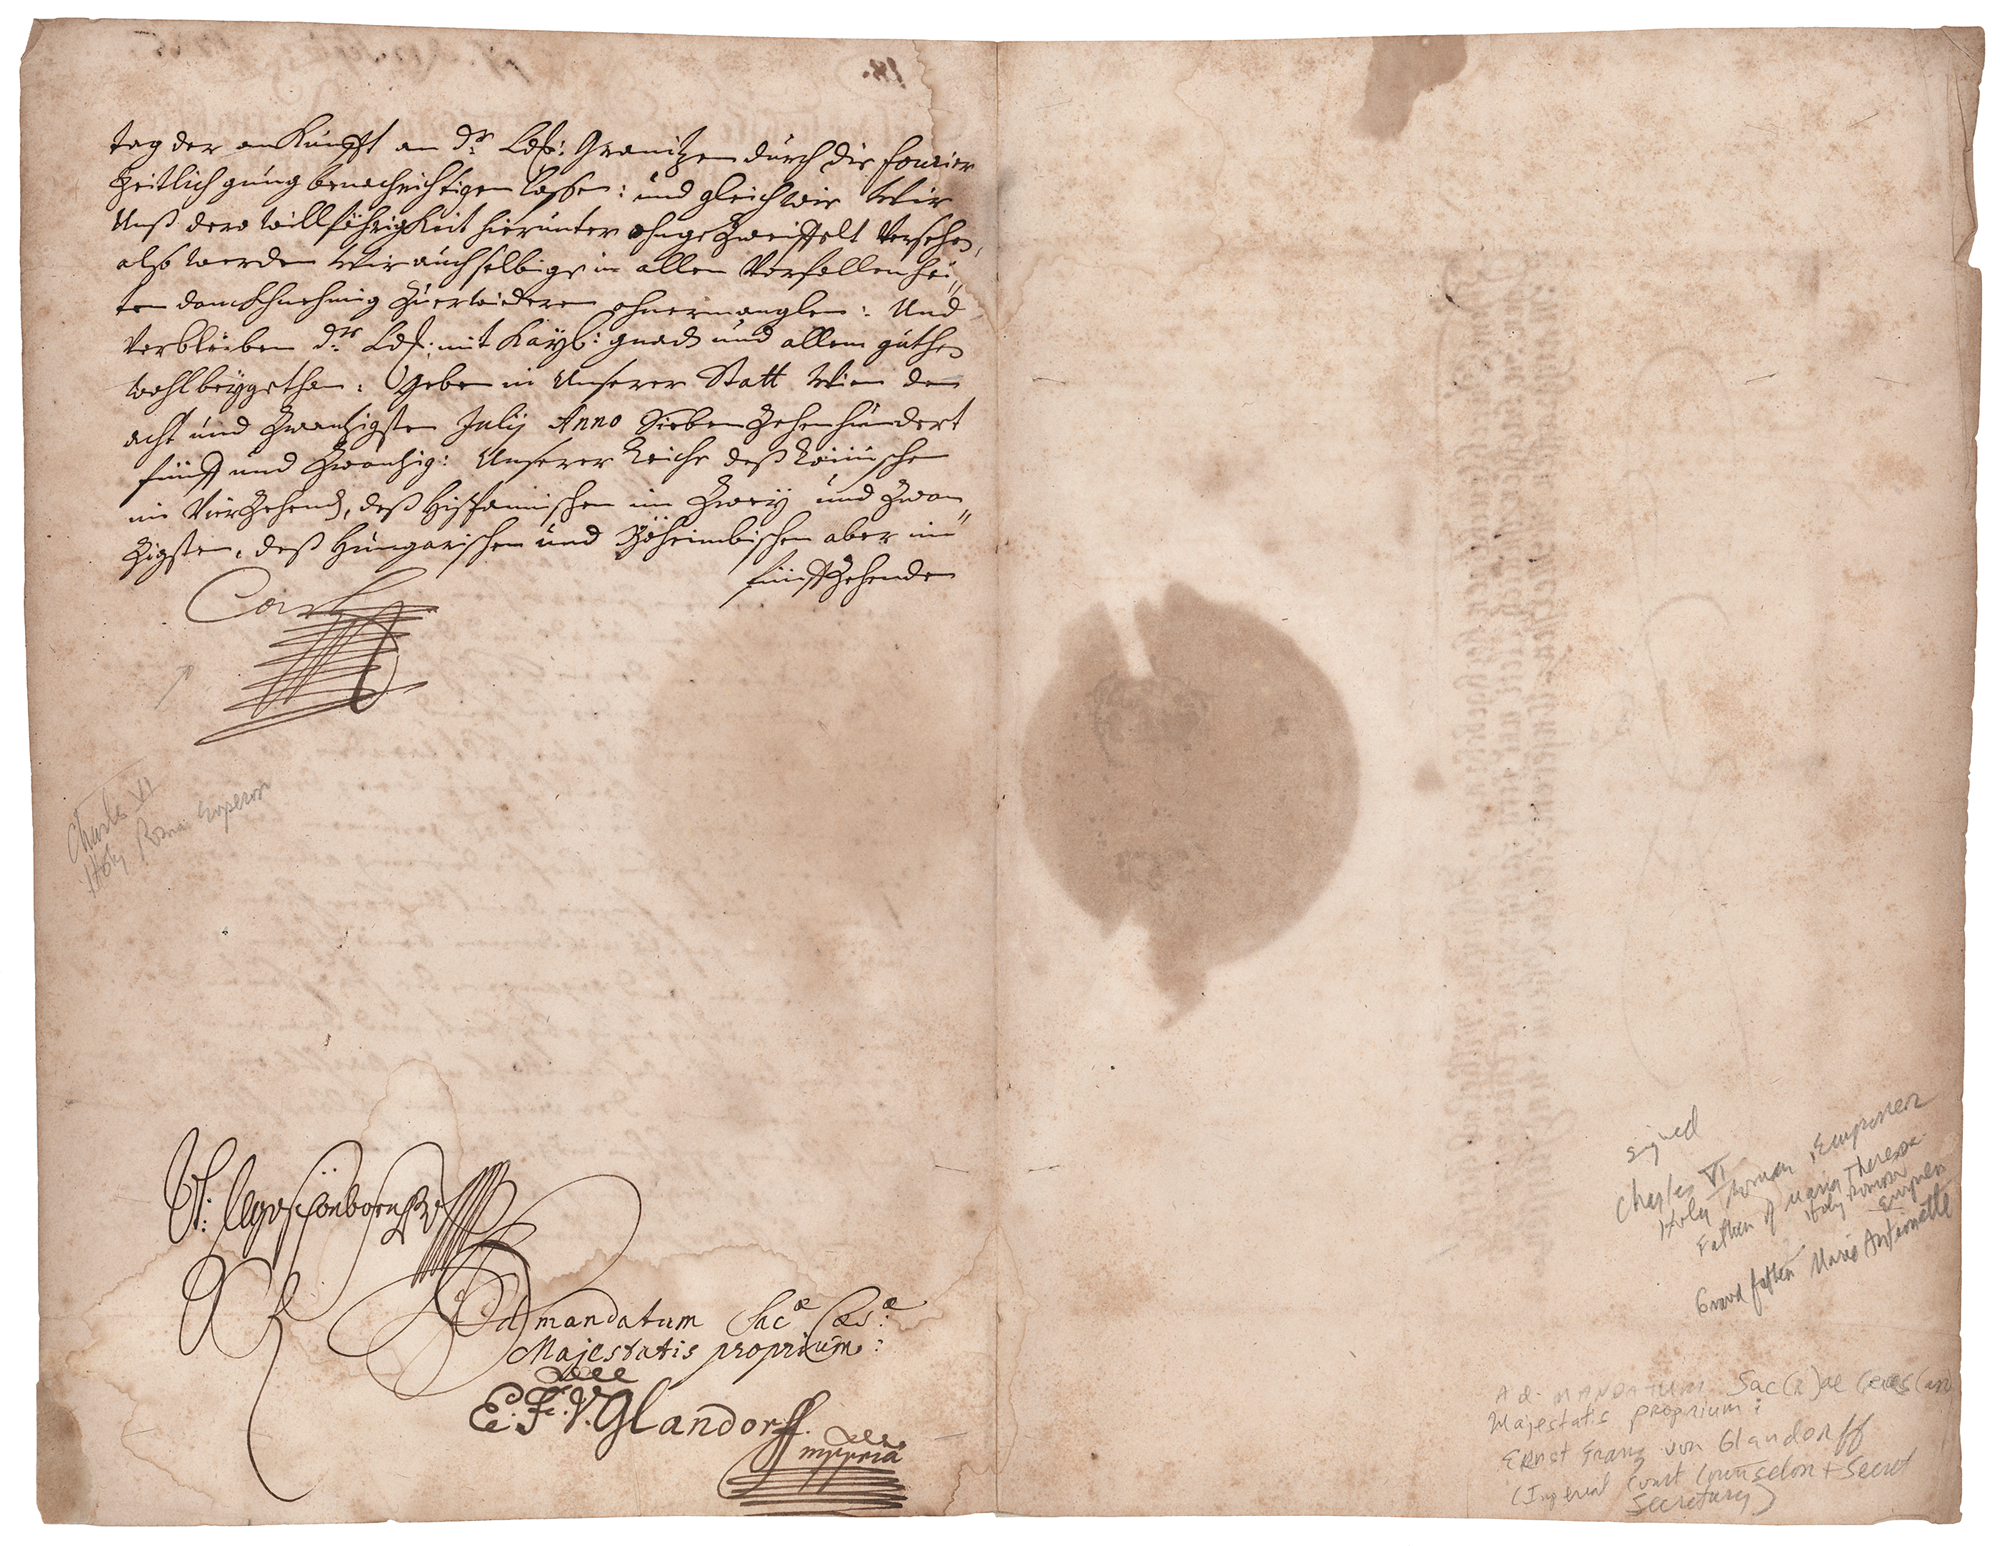 18.
tag der ankunfft an dr. Ld: Granitzen durch die fourier
Zeitlich gnug benachrichtigen lassen: und gleichwie Wir
Unß dero willfährigkeit hierunter ohngezweiffelt Versehen,
also werden Wir auch selbige in allen Vorfallenhei-
ten dancknehmig Zuerwideren ohnermanglen: Und
Verbleiben dr. Ld: mit Kayl: gnad und allem guthen
wohlbeygethan. Geben in Unserer Statt Wien den
acht und Zwantzigsten July Anno SiebenZehenhundert
fünff und Zwantzig: Unserer Reiche deß Römischen
im VierZehend, deß Hispanischen im Zwey und Zwan
Zigsten, deß Hungarischen und Böheimbischen aber im
fünffZehenden
Carl
Charles VI
Holy Roman Emperor
Vt: schönborn
Ad mandatum Sacae Caesae:
Majestatis proprium:
E. F. V. Glandorff
mppria
signed
Charles VI
Holy Roman Emperor
Father of Maria Theresa
Holy Roman
Empress
Grand father Marie Antoinette
Ad MANDATUM Sac(R)ae Caes(ae)
Majestatis proprium:
Ernst Franz von Glandorff
(Imperial Court Counselor + Secret
Secretary)